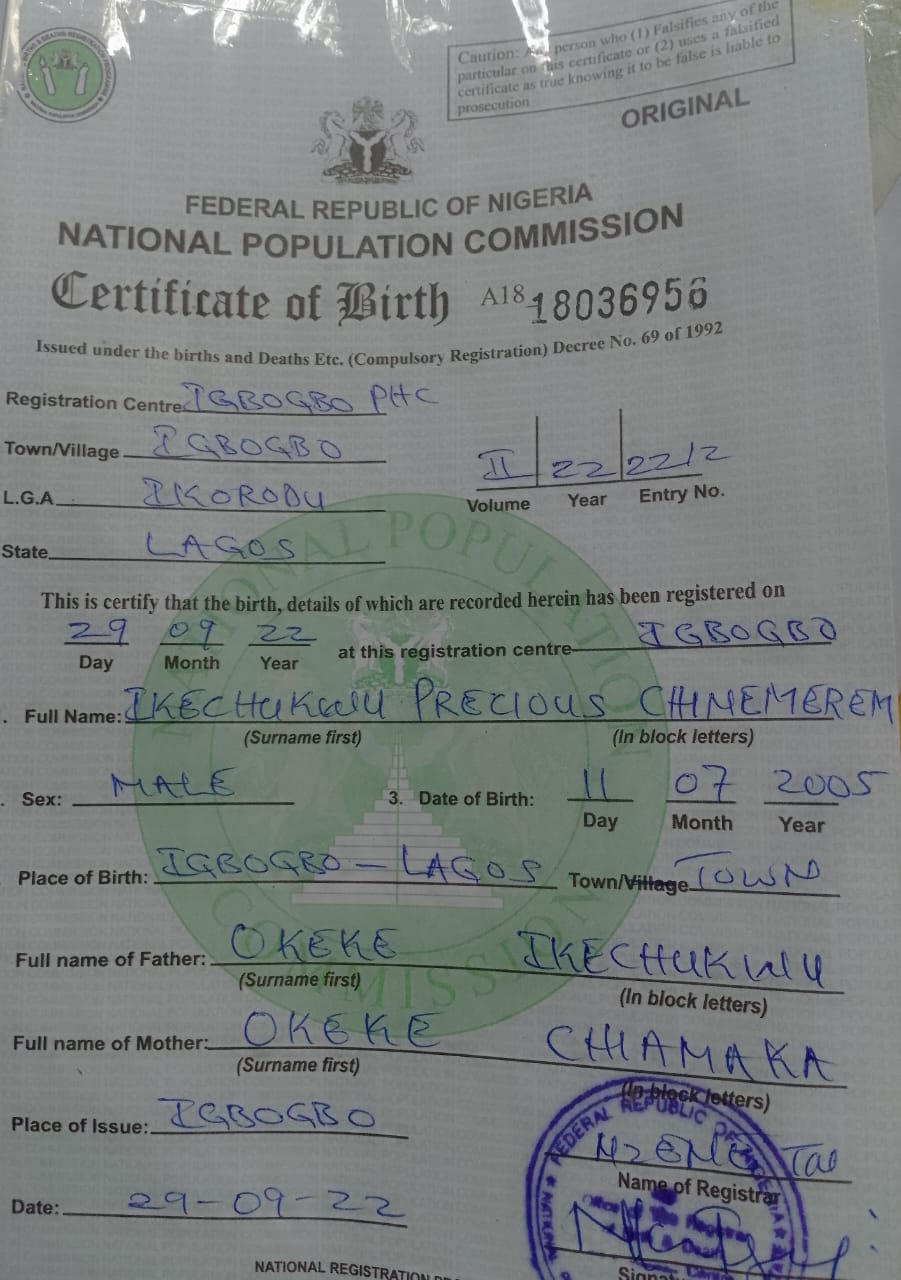 Caution: Any person who (1) Falsifies any of the
particular on this certificate or (2) uses a falsified
certificate as true knowing it to be false is liable to
prosecution
ORIGINAL
FEDERAL REPUBLIC OF NIGERIA
NATIONAL POPULATION COMMISSION
Certificate of Birth A18 18036956
Issued under the births and Deaths Etc. (Compulsory Registration) Decree No. 69 of 1992
Registration Centre IGBOGBO PHC
Town/Village IGBOGBO
II 22 2212
Volume Year Entry No.
L.G.A IKORODU
State LAGOS
This is certify that the birth, details of which are recorded herein has been registered on
29 09 22 at this registration centre IGBOGBO
Day Month Year
. Full Name: IKECHUKWU PRECIOUS CHINEMEREM
(Surname first) (In block letters)
. Sex: MALE 3. Date of Birth: 11 07 2005
Day Month Year
Place of Birth: IGBOGBO - LAGOS Town/Village TOWN
Full name of Father: OKEKE IKECHUKWU
(Surname first) (In block letters)
Full name of Mother: OKEKE CHIAMAKA
(Surname first) (In block letters)
Place of Issue: IGBOGBO
Name of Registrar
Date: 29-09-22
FEDERAL REPUBLIC OF NIGERIA
NATIONAL POPULATION COMMISSION